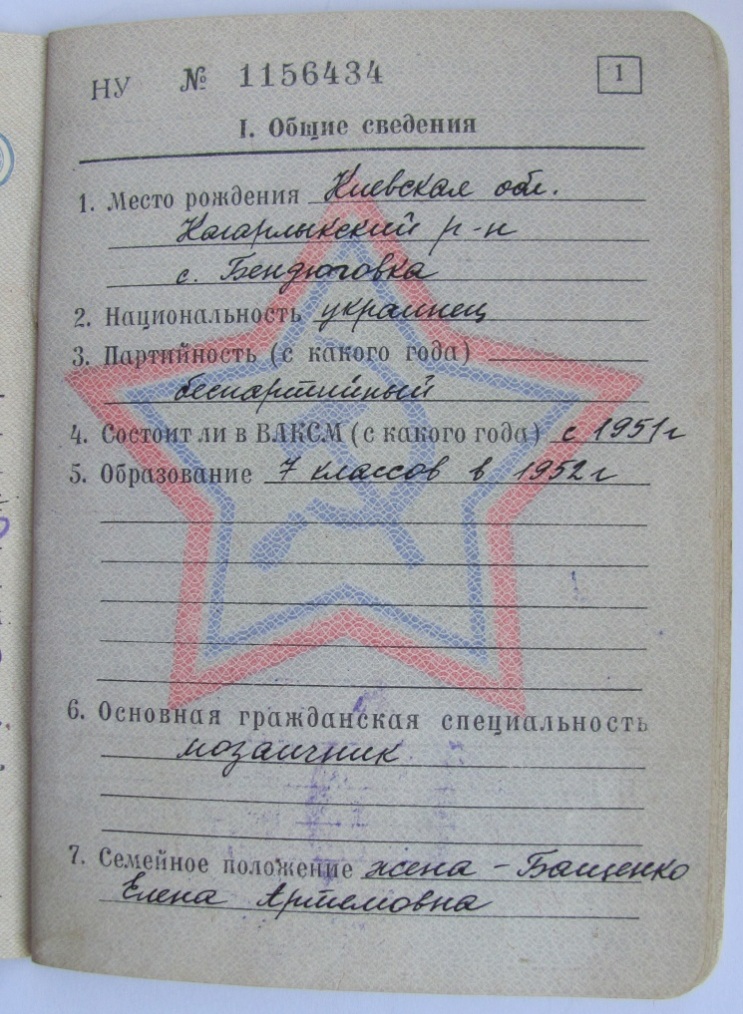 НУ № 1156434 1
I. Общие сведения
1. Место рождения Киевская обл.
Кагарлыкский р-н
с. Бендюговка
2. Национальность украинец
3. Партийность (с какого года)
беспартийный
4. Состоит ли в ВЛКСМ (с какого года) с 1951 г
5. Образование 7 классов в 1952 г
6. Основная гражданская специальность
мозаичник
7. Семейное положение жена - Бащенко
Елена Артемовна